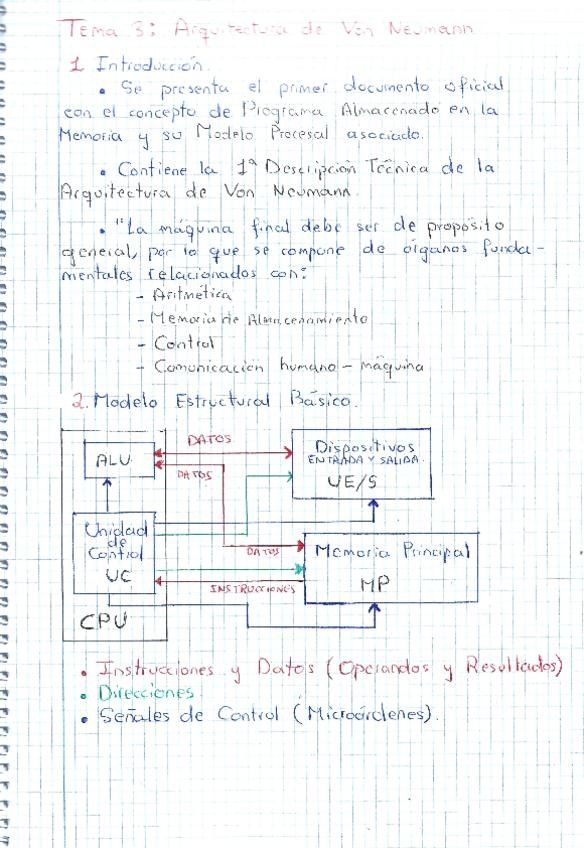 Tema 3: Arquitectura de Von Neumann
1 Introducción.
• Se presenta el primer documento oficial
con el concepto de Programa Almacenado en la
Memoria y su Modelo Procesal asociado.
• Contiene la 1ª Descripción Técnica de la
Arquitectura de Von Neumann.
• "La máquina final debe ser de propósito
general, por lo que se compone de órganos funda-
mentales relacionados con:
- Aritmética
- Memoria de Almacenamiento
- Control
- Comunicación humano - máquina
2. Modelo Estructural Básico.
DATOS
ALU
DATOS
Dispositivos
ENTRADA Y SALIDA.
UE/S
Unidad
de
Control
UC
DATOS
INSTRUCCIONES
Memoria Principal
MP
CPU
• Instrucciones y Datos (Operandos y Resultados)
• Direcciones.
• Señales de Control (Microórdenes).